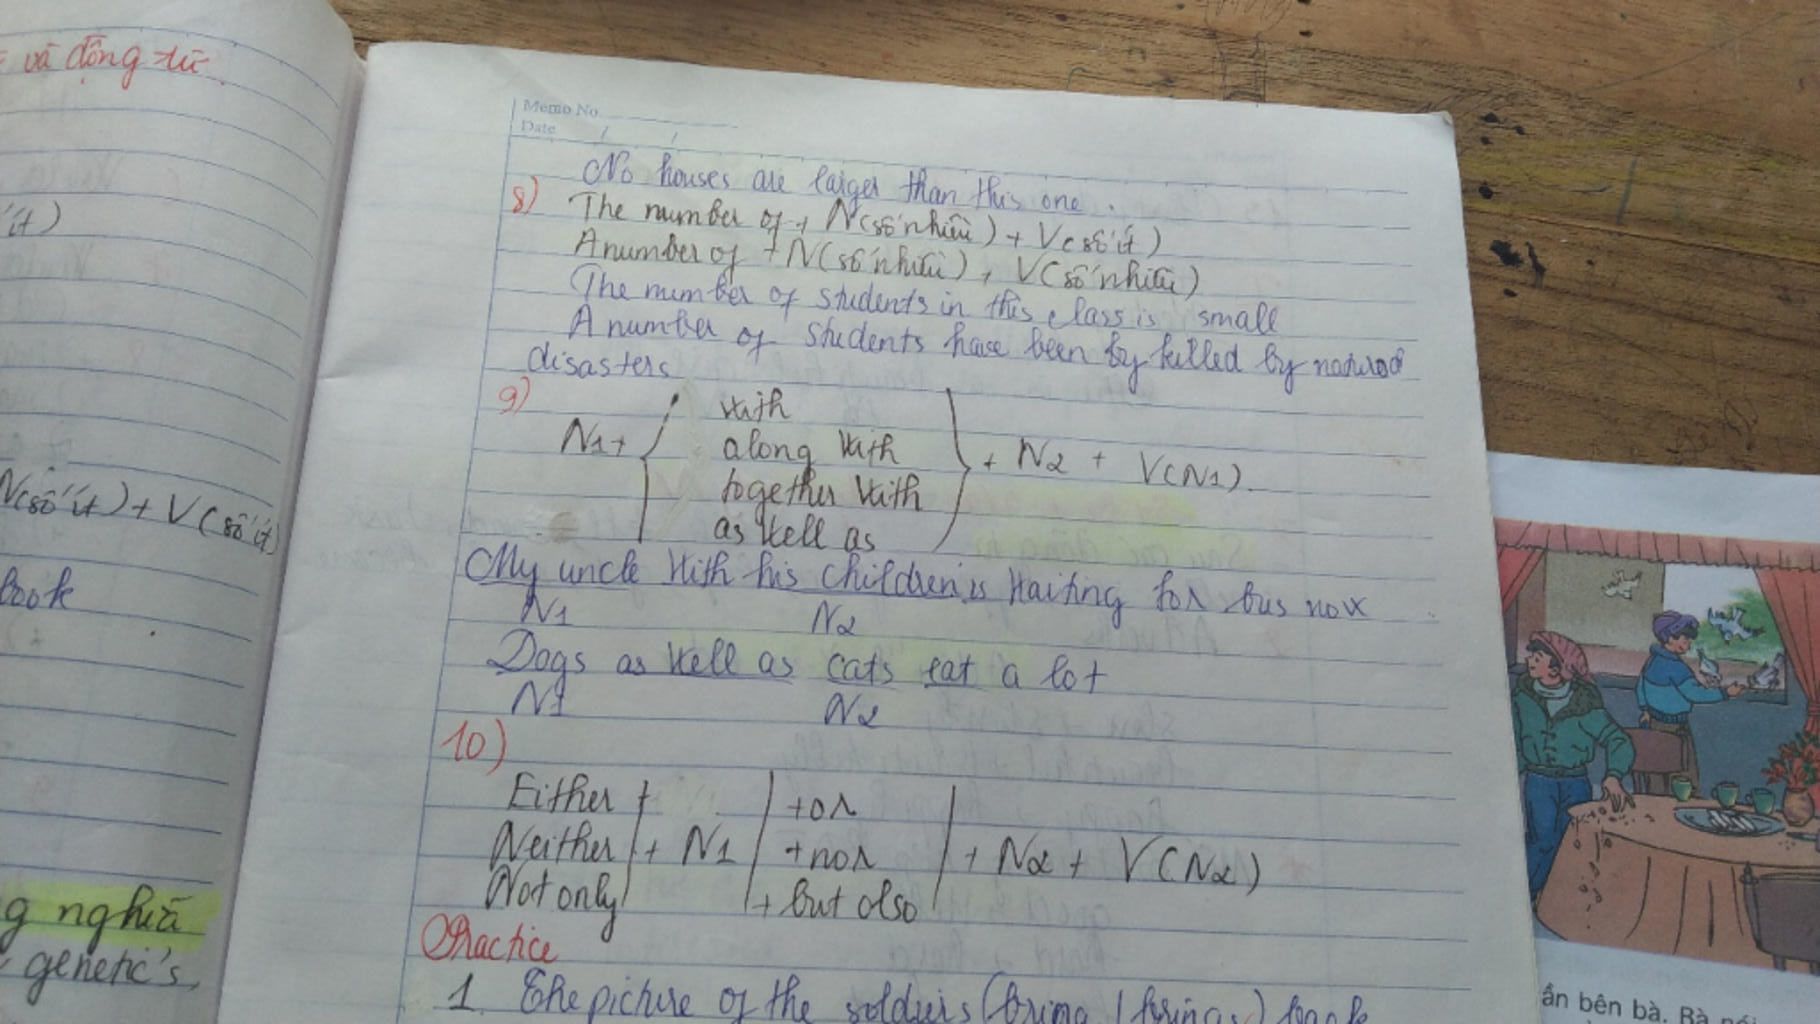 và động từ
ít)
N(số ít) + V(số ít)
book
g nghĩa
genetic's,
Memo No.
Date / /
No houses are larger than this one.
8) The number of + N(số nhiều) + V(số ít)
A number of + N(số nhiều), V(số nhiều)
The number of students in this class is small
A number of students have been by killed by natural
disasters
9)
with
N1+ along with + N2 + V(N1).
together with
as well as
My uncle with his children is waiting for bus now
N1 N2
Dogs as well as cats eat a lot
N1 N2
10)
Either + + or
Neither + N1 + nor + N2 + V(N2)
Not only + but also
Practice
1. The picture of the soldiers (bring / brings) back
ần bên bà. Bà nói